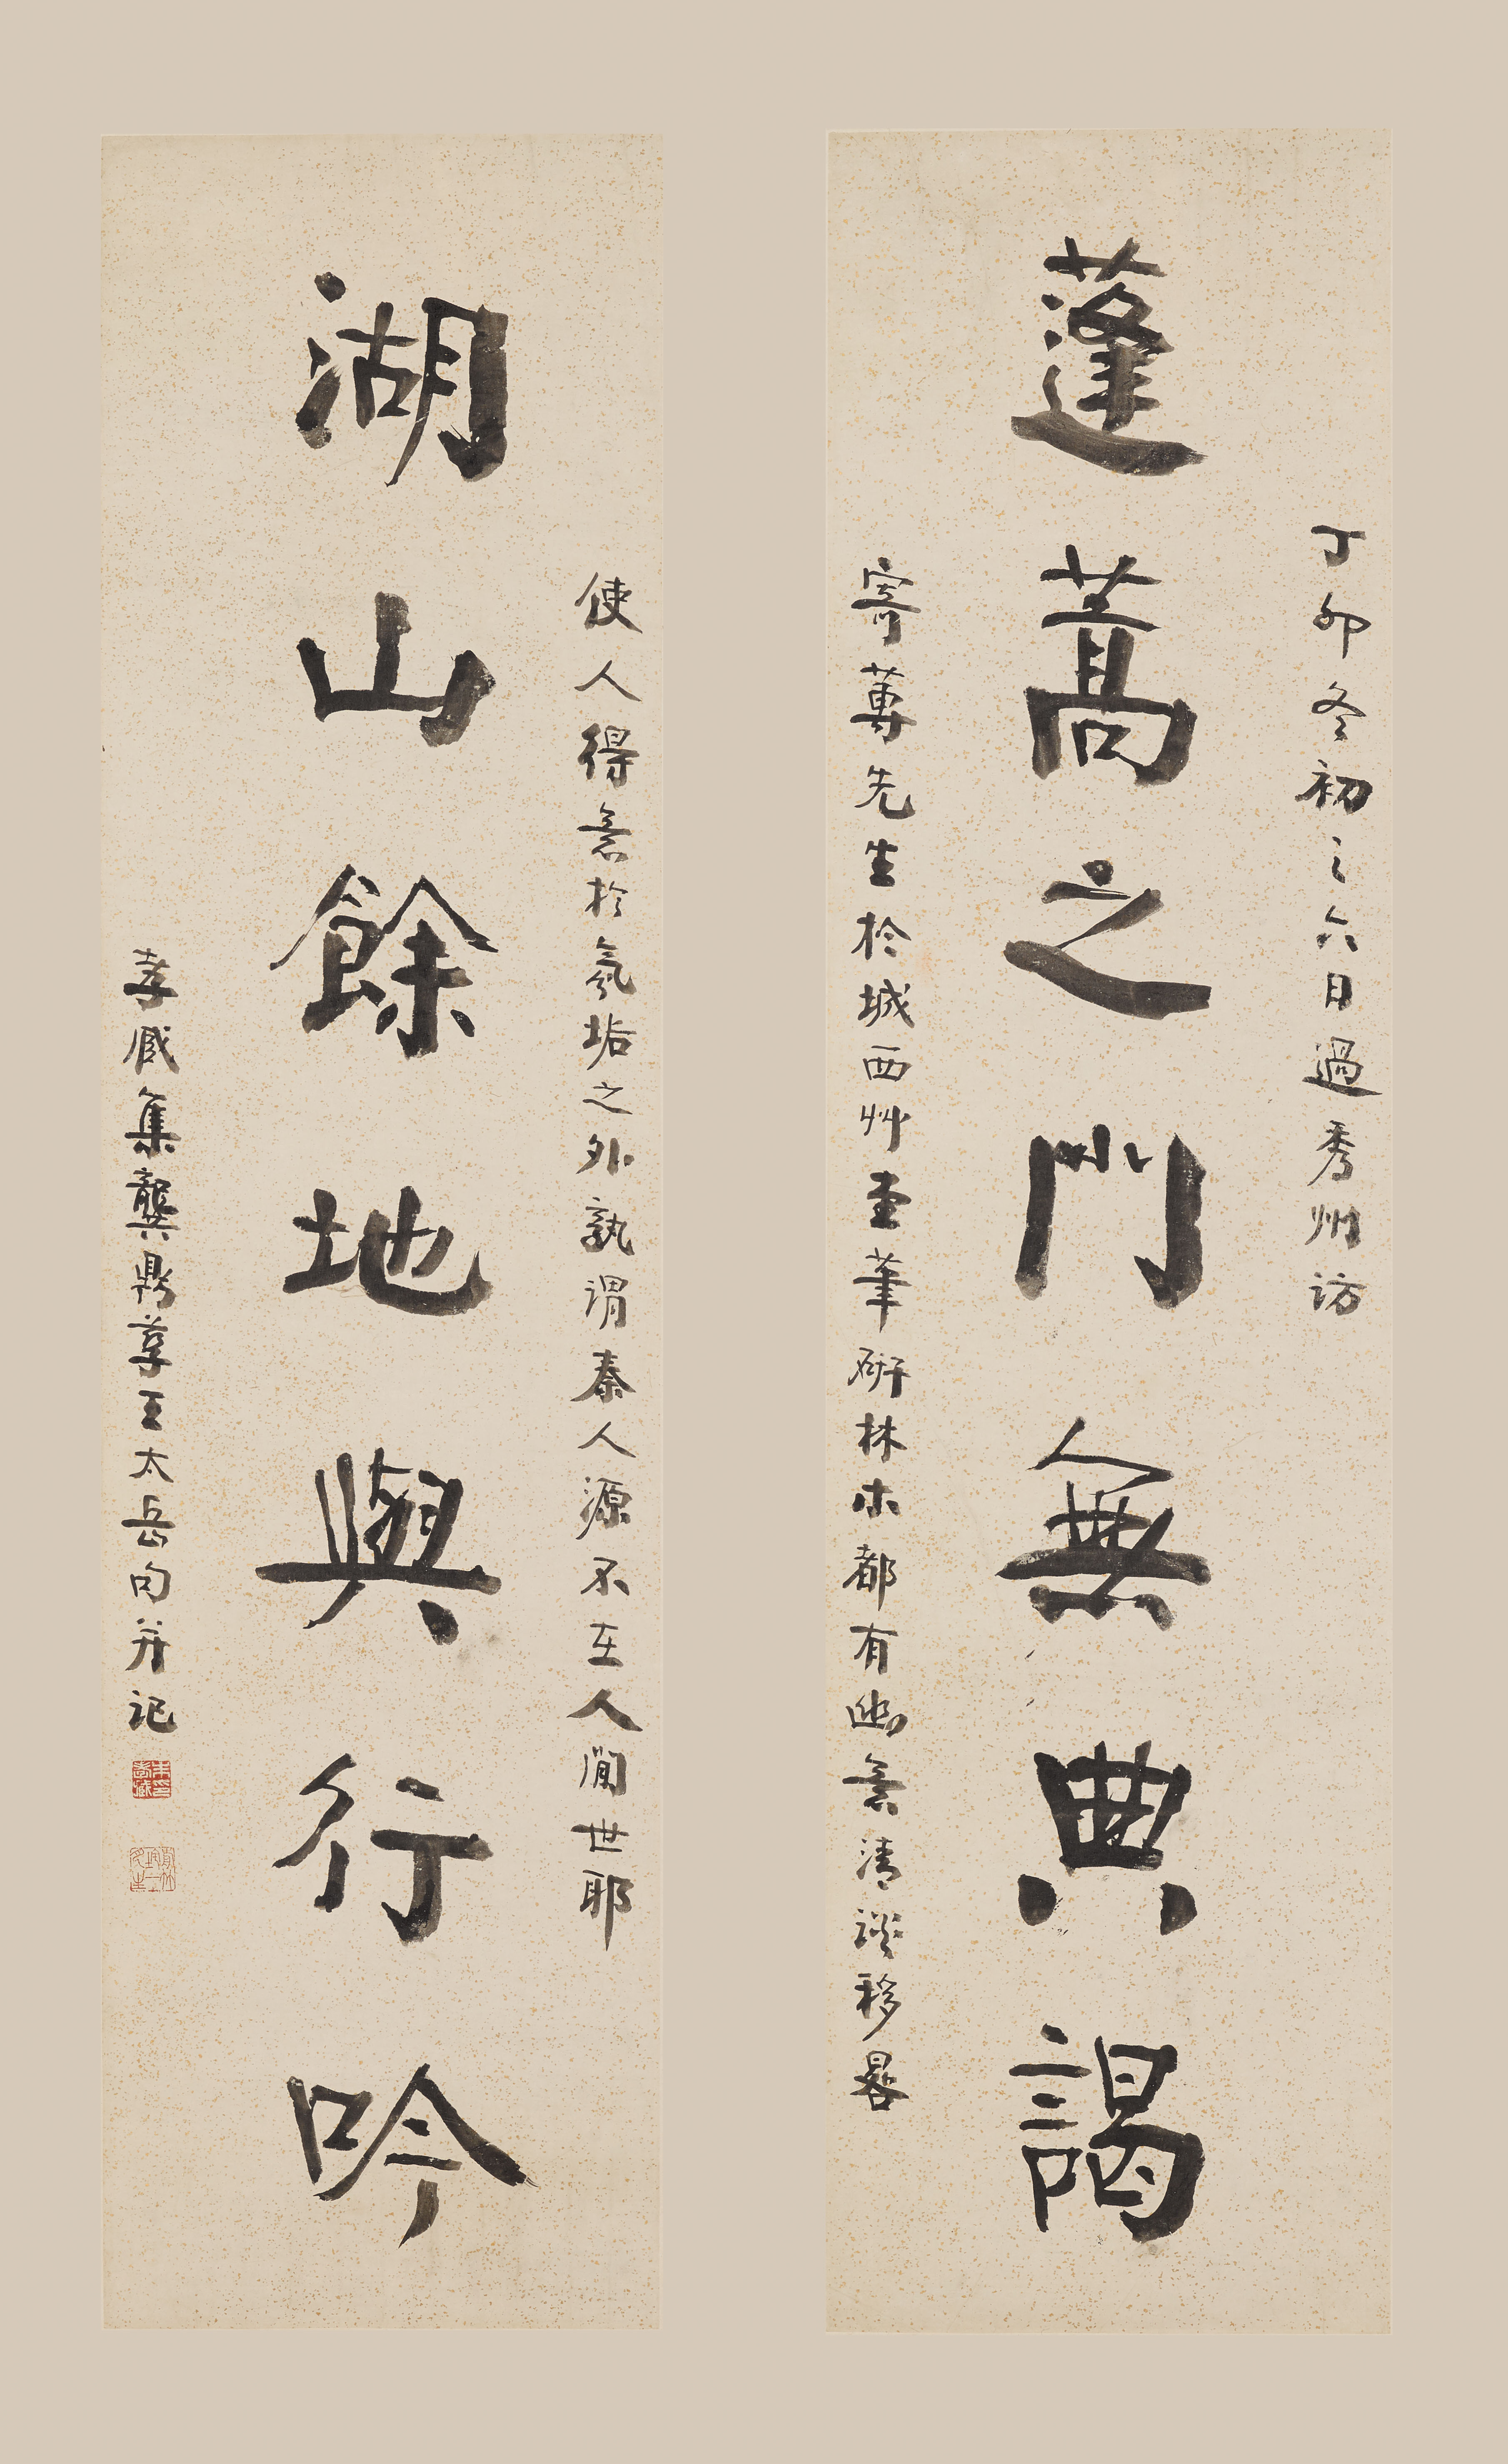 蓬蒿之門無典謁
丁卯冬初之六日過秀州訪
寄蓴先生於城西艸堂筆研林木都有幽意清談移晷
湖山餘地與行吟
使人得意於氛垢之外孰謂秦人源不在人閒世耶
孝臧集龔鼎孳王太岳句并記